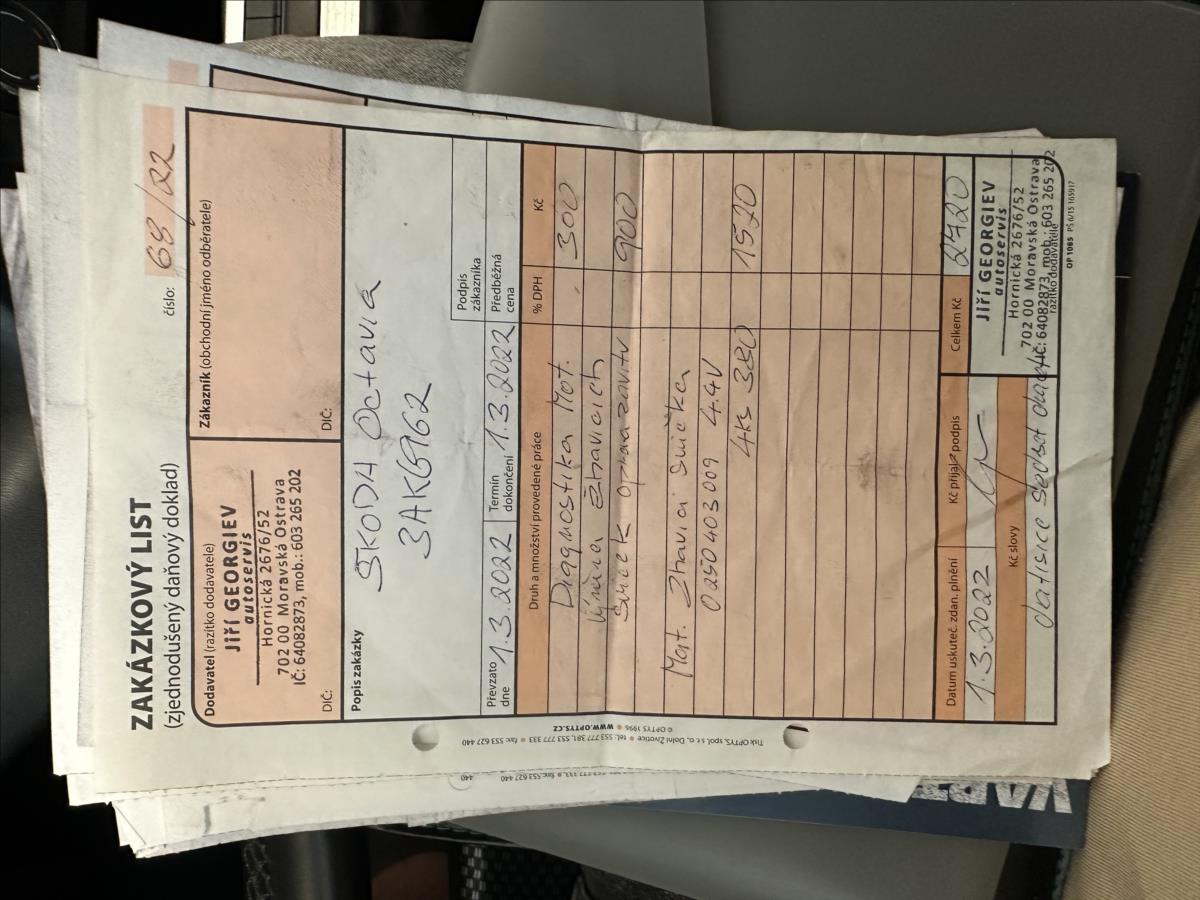 ZAKÁZKOVÝ LIST
(zjednodušený daňový doklad)
číslo: 68/22
Dodavatel (razítko dodavatele)
JIŘÍ GEORGIEV
autoservis
Hornická 2676/52
702 00 Moravská Ostrava
IČ: 64082873, mob.: 603 265 202
DIČ:
Zákazník (obchodní jméno odběratele)
DIČ:
Popis zakázky
ŠKODA Octavia
3AK6962
Podpis zákazníka
Převzato dne 1.3.2022
Termín dokončení 1.3.2022
Předběžná cena
Druh a množství provedené práce % DPH Kč
Diagnostika Mot. 300
Výměna Žhavicích
Svíček oprava závitu 900
Mat. Žhavicí Svíčka
0250403009 4.4V
4ks 380 1520
Datum uskuteč. zdan. plnění
1.3.2022
Kč přijal podpis
Celkem Kč 2720
Kč slovy
dvatisíce sedmset dvacet
JIŘÍ GEORGIEV
autoservis
Hornická 2676/52
702 00 Moravská Ostrava
IČ: 64082873, mob.: 603 265 202
razítko dodavatele
OP 1085 PS 6/15 165917
Tisk OPTYS, spol. s r. o., Dolní Životice • tel.: 553 777 381, 553 777 333 • fax: 553 627 440
© OPTYS 1996 • WWW.OPTYS.CZ